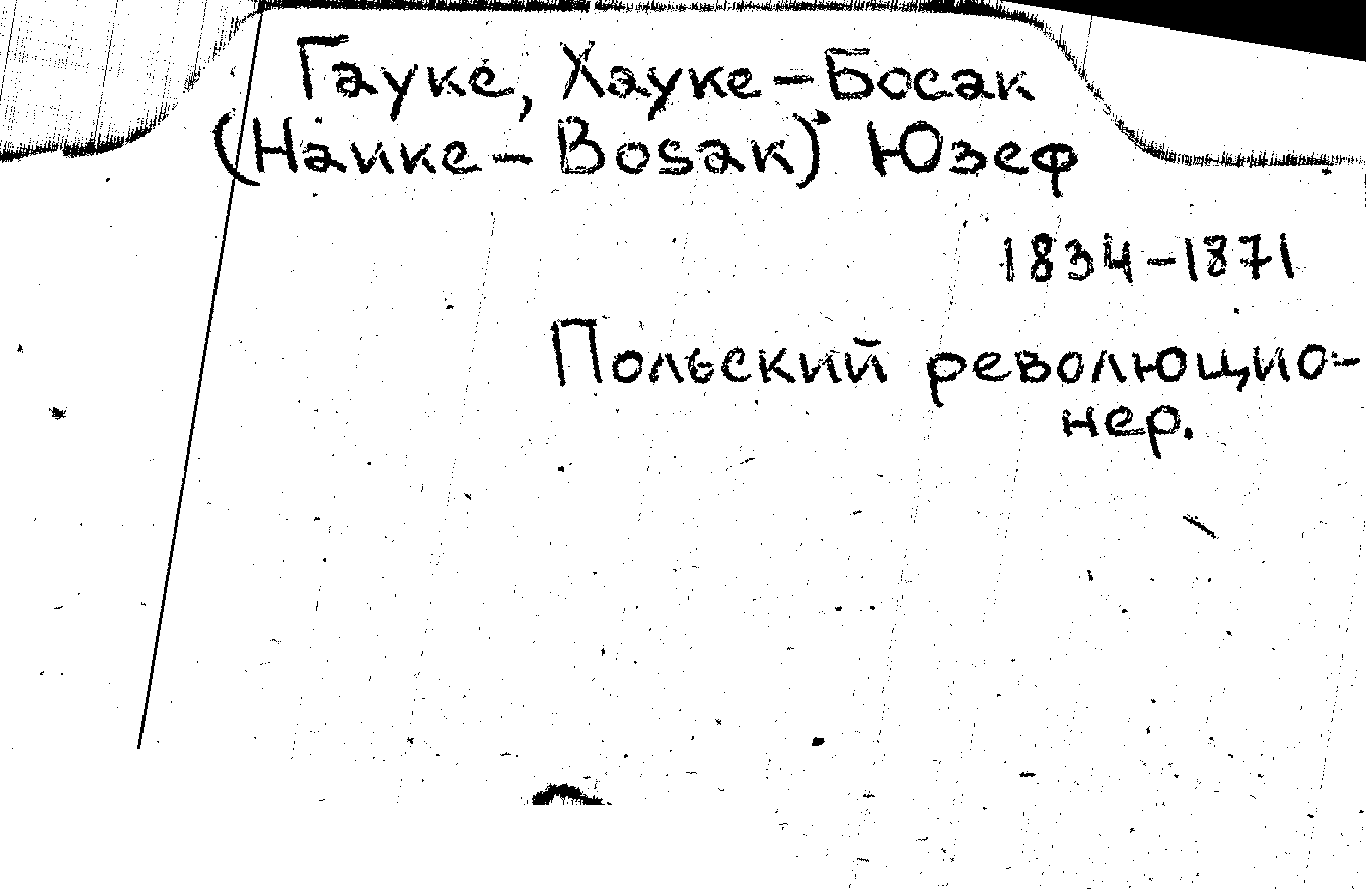 Гауке, Хауке-Босак
(Hauke-Bosak) Юзеф
1834-1871
Польский революцио-
нер.